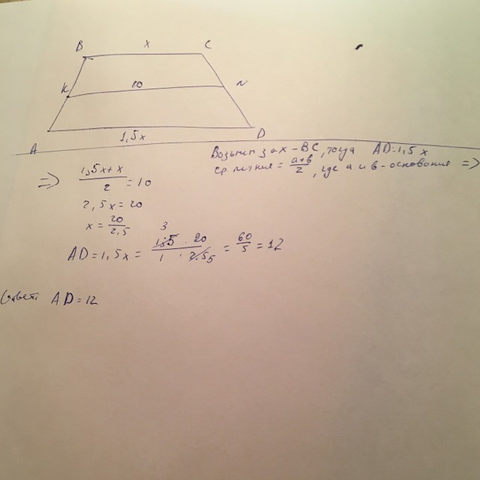 B x C
K 10 N
A 1,5x D
Возьмем за x - BC, тогда AD=1,5x
ср линия = a+b/2, где a и b - основания =>
=> 1,5x+x/2 = 10
2,5x=20
x = 20/2,5
AD=1,5x = 1,5 3 · 20/1 · 2,5 5 = 60/5 = 12
Ответ: AD=12